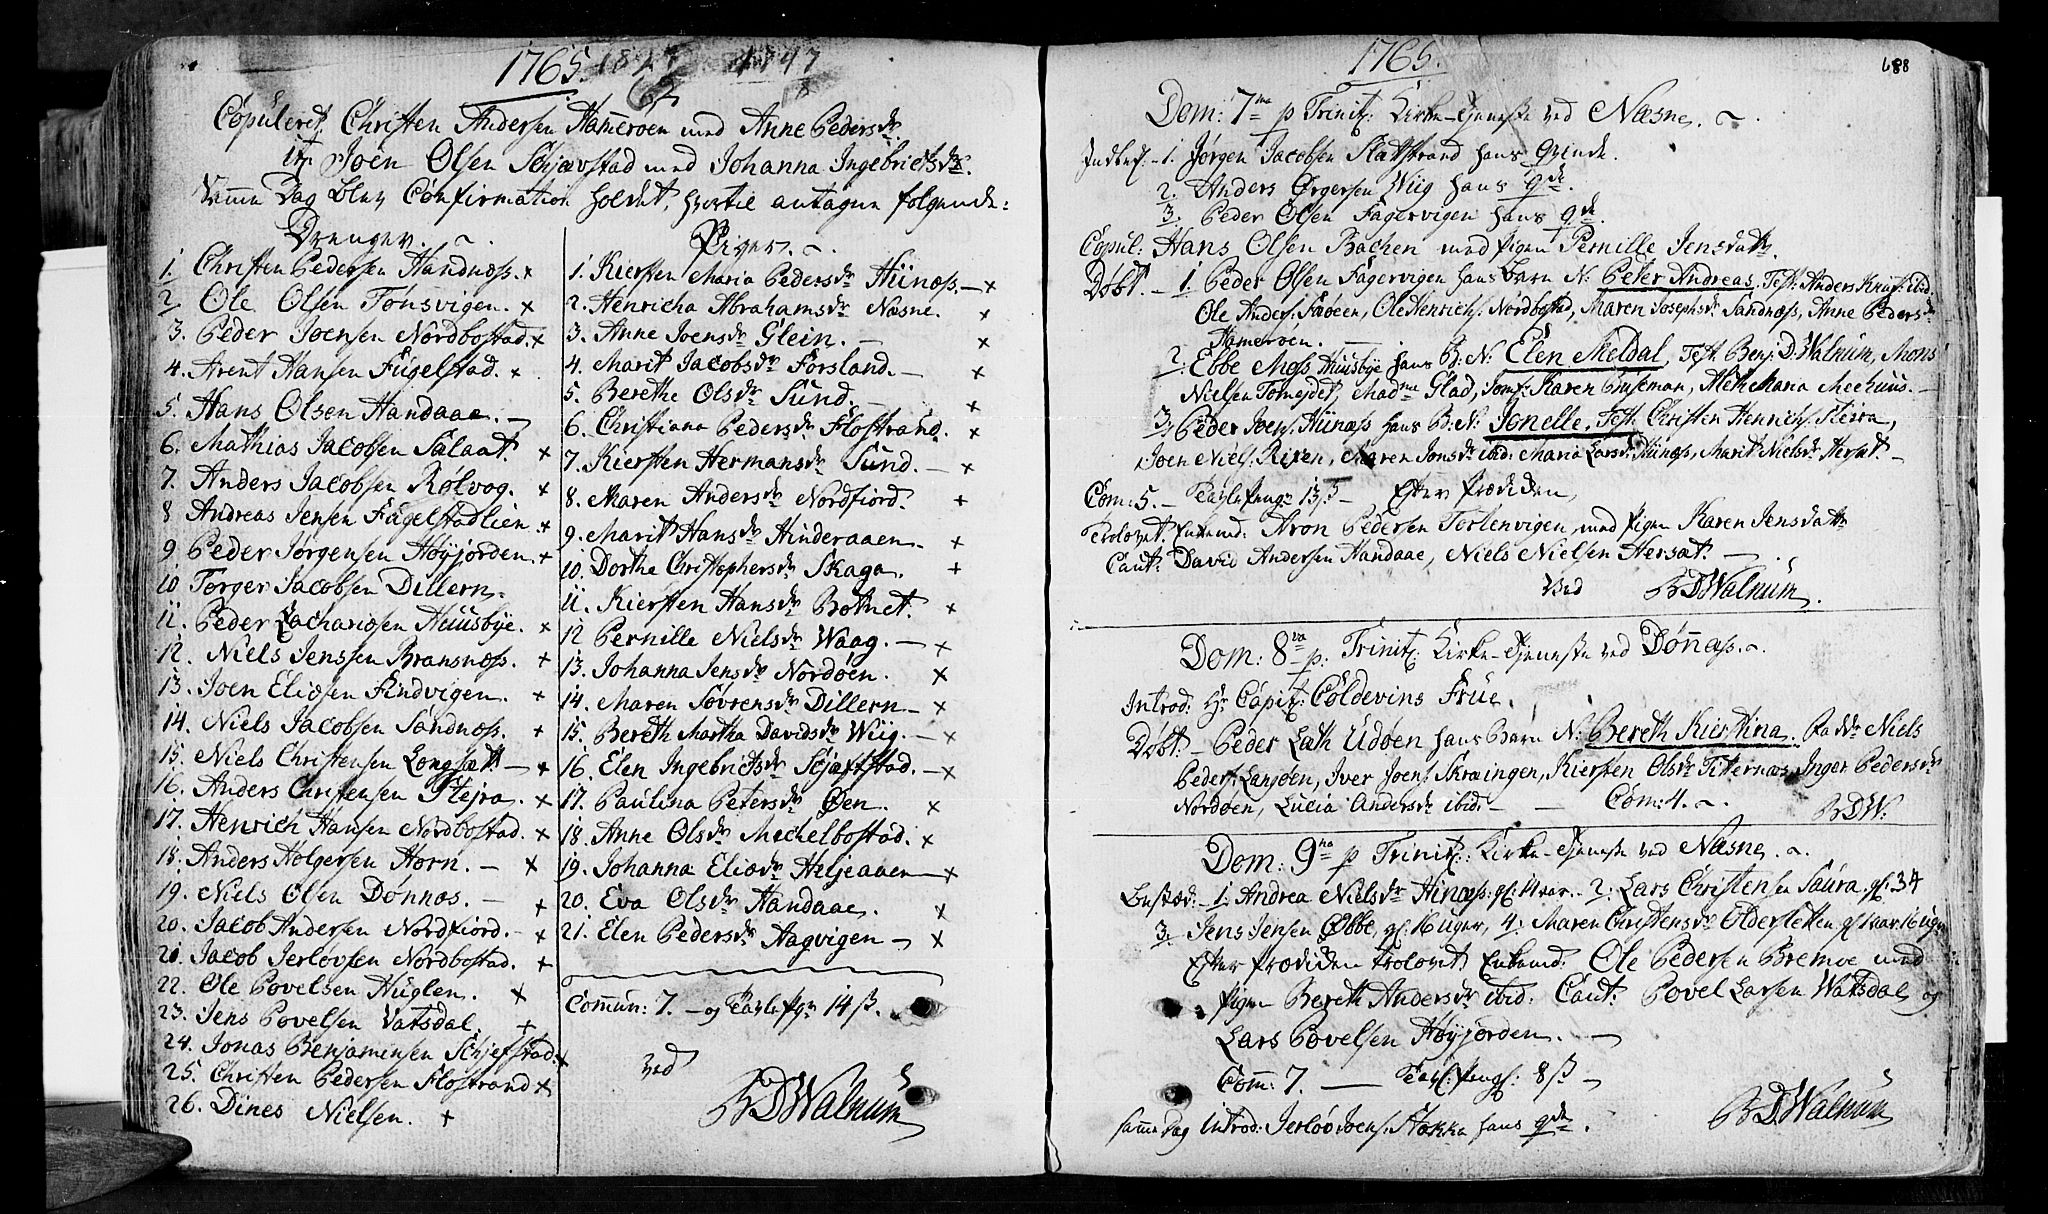 1765.
1827 1747
62 18
Copuleret, Christen Andersen Hameroen med Anne Pedersdr
it: Joen Olsen Schjævstad med Johanna Ingebrichtsdr.
Samme Dag blev Confirmation holdet, hvortil antagne følgende:
Drenger.
1. Christen Pedersen Handnæss. x
2. Ole Olsen Tønsvigen. x
3. Peder Joensen Nordbostad. x
4. Arent Hansen Fugelstad. x
5. Hans Olsen Handaae. -
6. Mathias Jacobsen Salaat. x
7. Anders Jacobsen Rølvog. x
8 Andreas Jensen Fugelstadlien x
9 Peder Jørgensen Høyjorden. x
10 Torger Jacobsen Dillern.
11. Peder Zachariæsen Huusbye. x
12. Niels Jenssen Bransnæss. x
13. Joen Eliæsen Findvigen. x
14. Niels Jacobsen Sandnæss. x
15. Niels Christensen Longsæt. - x
16. Anders Christensen Stejra. x
17. Henrich Hansen Nordbostad. x
18. Anders Holgersen Horn. - x
19. Niels Olsen Dønnæs. - x
20. Jacob Andersen Nordfiord. - x
21. Jacob Jerlovsen Nordbostad. x
22. Ole Povelsen Huglen. x
23. Jens Povelsen Vatsdal. x
24. Jonas Benjaminsen Schjefstad. x
25. Christen Pedersen Flostrand x
26. Dines Nielsen. x
Piger.
1. Kiersten Maria Pedersdr Hiinæss. - x
2. Henricha Abrahamsdr Næsne. x
3. Anne Joensdr Glein. - x
4. Marit Jacobsdr Forsland. - x
5. Berethe Olsdr Sund. - x
6. Christiana Pedersdr Flostrand. x
7. Kiersten Hermansdr Sund. - x
8. Maren Andersdr Nordfiord. x
9. Marit Hansdr Hinderaaen. x
10. Dorthe Christophersdr Skaga. x
11. Kiersten Hansdr Botnet. x
12 Pernille Nielsdr Waag. - x
13. Johanna Jensdr Nordøen. x
14. Maren Søvrensdr Dillern - x
15. Bereth Martha Davidsdr Wiig. - x
16. Elen Ingebrictsdr Schjæfstad. - x
17. Paulina Petersdr Øen. x
18. Anne Olsdr Mechelbostad. x
19. Johanna Eliædr Heljeaaen - x
20. Eva Olsdr Handaae. x
21. Elen Pedersdr Hagvigen - x
Commun: 7. - og Tavlepgr 14 ß.
ved
BDWalnum
1765.
688
Dom: 7ma p Trinit: Kirke-Tjeneste ved Næsne.
Indled: 1. Jørgen Jacobsen Slatstrand hans Qvinde.
2. Anders Ørgersen Wiig hans qde.
3. Peder Olsen Fagervigen hans qde.
Copul: Hans Olsen Bachen med Pigen Pernille Jensdatr.
Døbt. - 1. Peder Olsen Fagervigen hans barn N: Peter Andreas. Test: Anders Knuds: ibid.
Ole Anders: Faøeen, Ole Henrichs: Nordbostad, Maren Josephsdr Sandnæss, Anne Pedersdr
Hamerøen.
2. Ebbe Moss Huusbye hans B: N: Elen Meldal, Test. Benj: D: Walnum, Mons
Nielsen Madme Glad, Jomf: Karen Meehuus.
3. Peder Joens: Hiinæss hans B: N: Jonelle. Test. Christen Henrichs: Steira,
Joen Niels: Maren Jonsdr ibid. Maria Larsdr Hiinæss, Marit Nielsdr Hersæt. -
Com: 5. - Tavlepengr 13 ß - Efter Prædiken,
Trolovet: Enkemd: Aron Pedersen Teilenvigen, med Pigen Karen Jensdattr
Caut: David Andersen Handaae, Niels Nielsen Hersæt. -
Ved BDWalnum.
Dom: 8va p: Trinit: Kirke-Tjeneste ved Dønnæss.
Introd: Hr Capit: Coldevins Frue.
Døbt. - Peder Lath Udøen hans Barn N: Bereth Kierstina. Faddr Niels
Peders: Langøen, Iver Joens: Skræingen, Kiersten Olsdr Titternæs, Inger Pedersdr
Nordøen, Lucia Andersdr ibid. - Com: 4.
BDW:
Dom: 9na p Trinit: Kirke-Tjeneste ved Næsne.
Begravd: - 1. Andrea Nielsdr Hinæss: gl: aar. 2. Lars Christensen Saura, gl: 34
3. Jens Jensen Øbbe, gl: 16 uger, 4. Maren Christensdr Oldersletten gl 1 aar 16 ugr
Efter Prædiken trolovet Enkemd: Ole Pedersen Bremoe med
Pigen Bereth Andersdr ibid: Caut. Povel Larsen Watsdal og
Lars Povelsen Høyjorden. -
Com: 7. - Tavl: pengr: 8 ß -
samme Dag introd: Jerlov Joens: Stokka hans qde.
BDWalnum